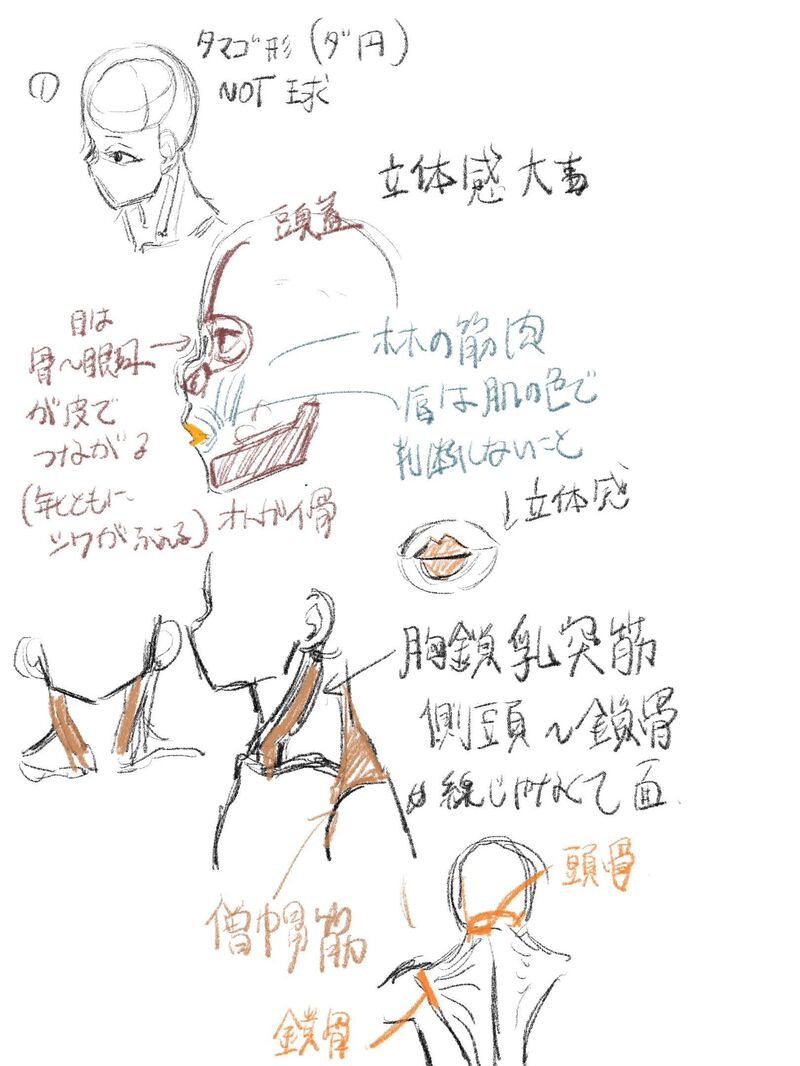 ①
タマゴ形(ダ円)
NOT 球
立体感大事
頭蓋
目は
骨〜眼球
が皮で
つながる
(年とともに
シワがふえる)
オトガイ骨
ホホの筋肉
唇は肌の色で
判断しないこと
立体感
胸鎖乳突筋
側頭〜鎖骨
線じゃなくて面
僧帽筋
頭骨
鎖骨